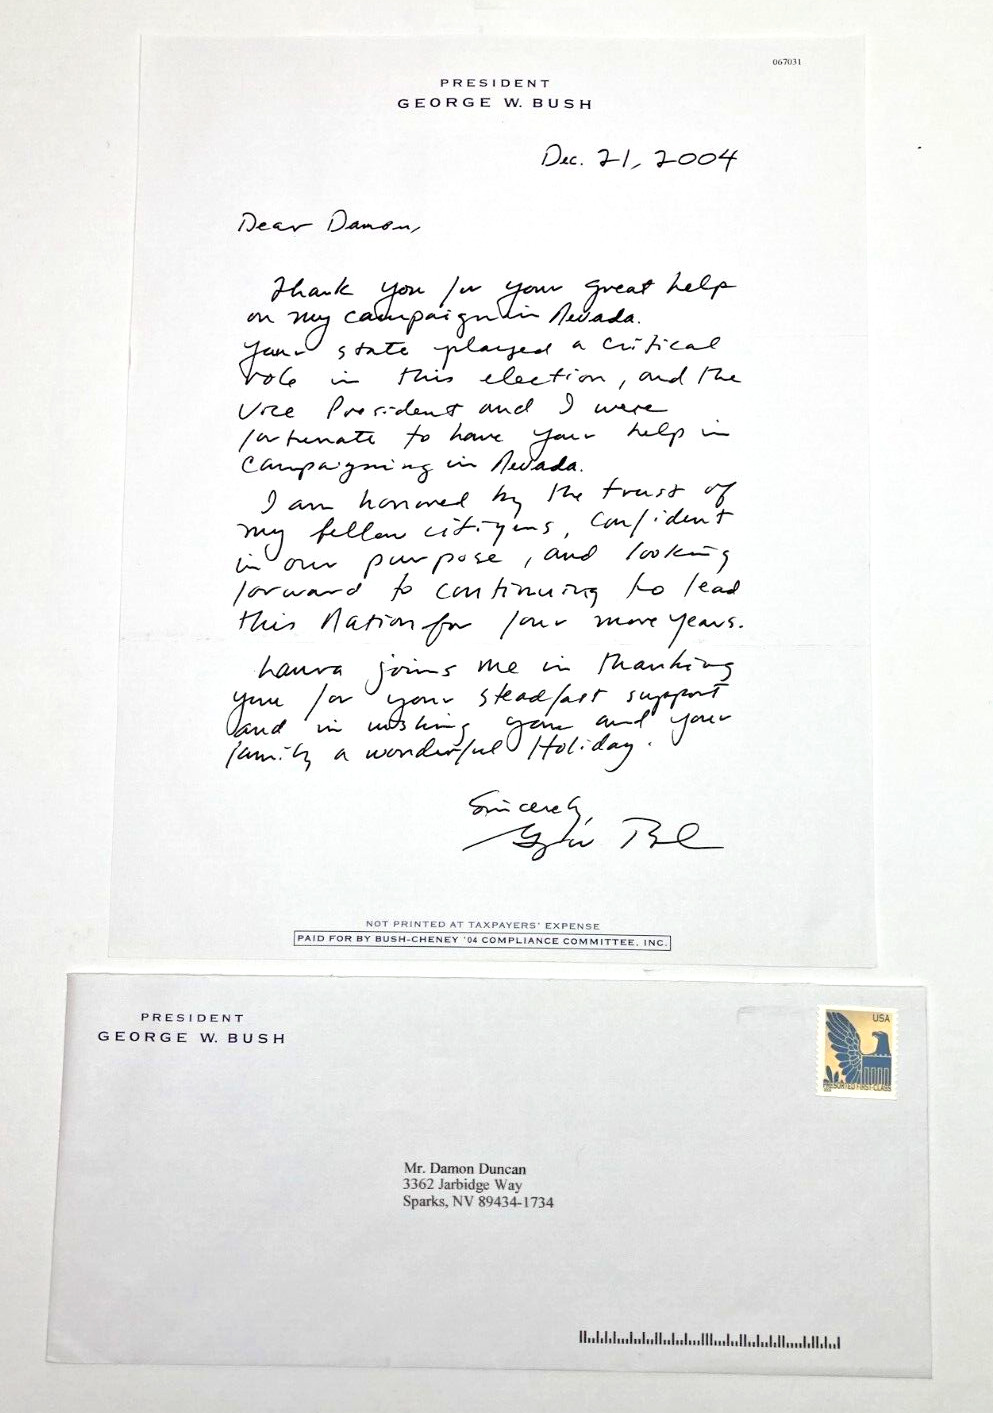 067031
PRESIDENT
GEORGE W. BUSH
Dec. 21, 2004
Dear Damon,
Thank you for your great help
on my campaign in Nevada.
Your state played a critical
role in this election, and the
Vice President and I were
fortunate to have your help in
campaigning in Nevada.
I am honored by the trust of
my fellow citizens, confident
in our purpose, and looking
forward to continuing to lead
this Nation for four more years.
Laura joins me in thanking
you for your steadfast support
and in wishing you and your
family a wonderful Holiday.
Sincerely,
George Bush
NOT PRINTED AT TAXPAYERS' EXPENSE
PAID FOR BY BUSH-CHENEY '04 COMPLIANCE COMMITTEE, INC.
PRESIDENT
GEORGE W. BUSH
USA
PRESORTED FIRST-CLASS
Mr. Damon Duncan
3362 Jarbidge Way
Sparks, NV 89434-1734